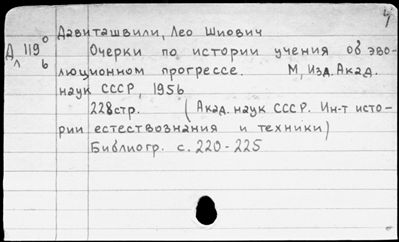 Давиташвили, Лео Шиович
Д 119 0
л б
Очерки по истории учения об эво-
люционном прогрессе. М, Изд. Акад.
наук СССР, 1956
228стр. (Акад. наук СССР. Ин-т исто-
рии естествознания и техники)
Библиогр. с. 220-225